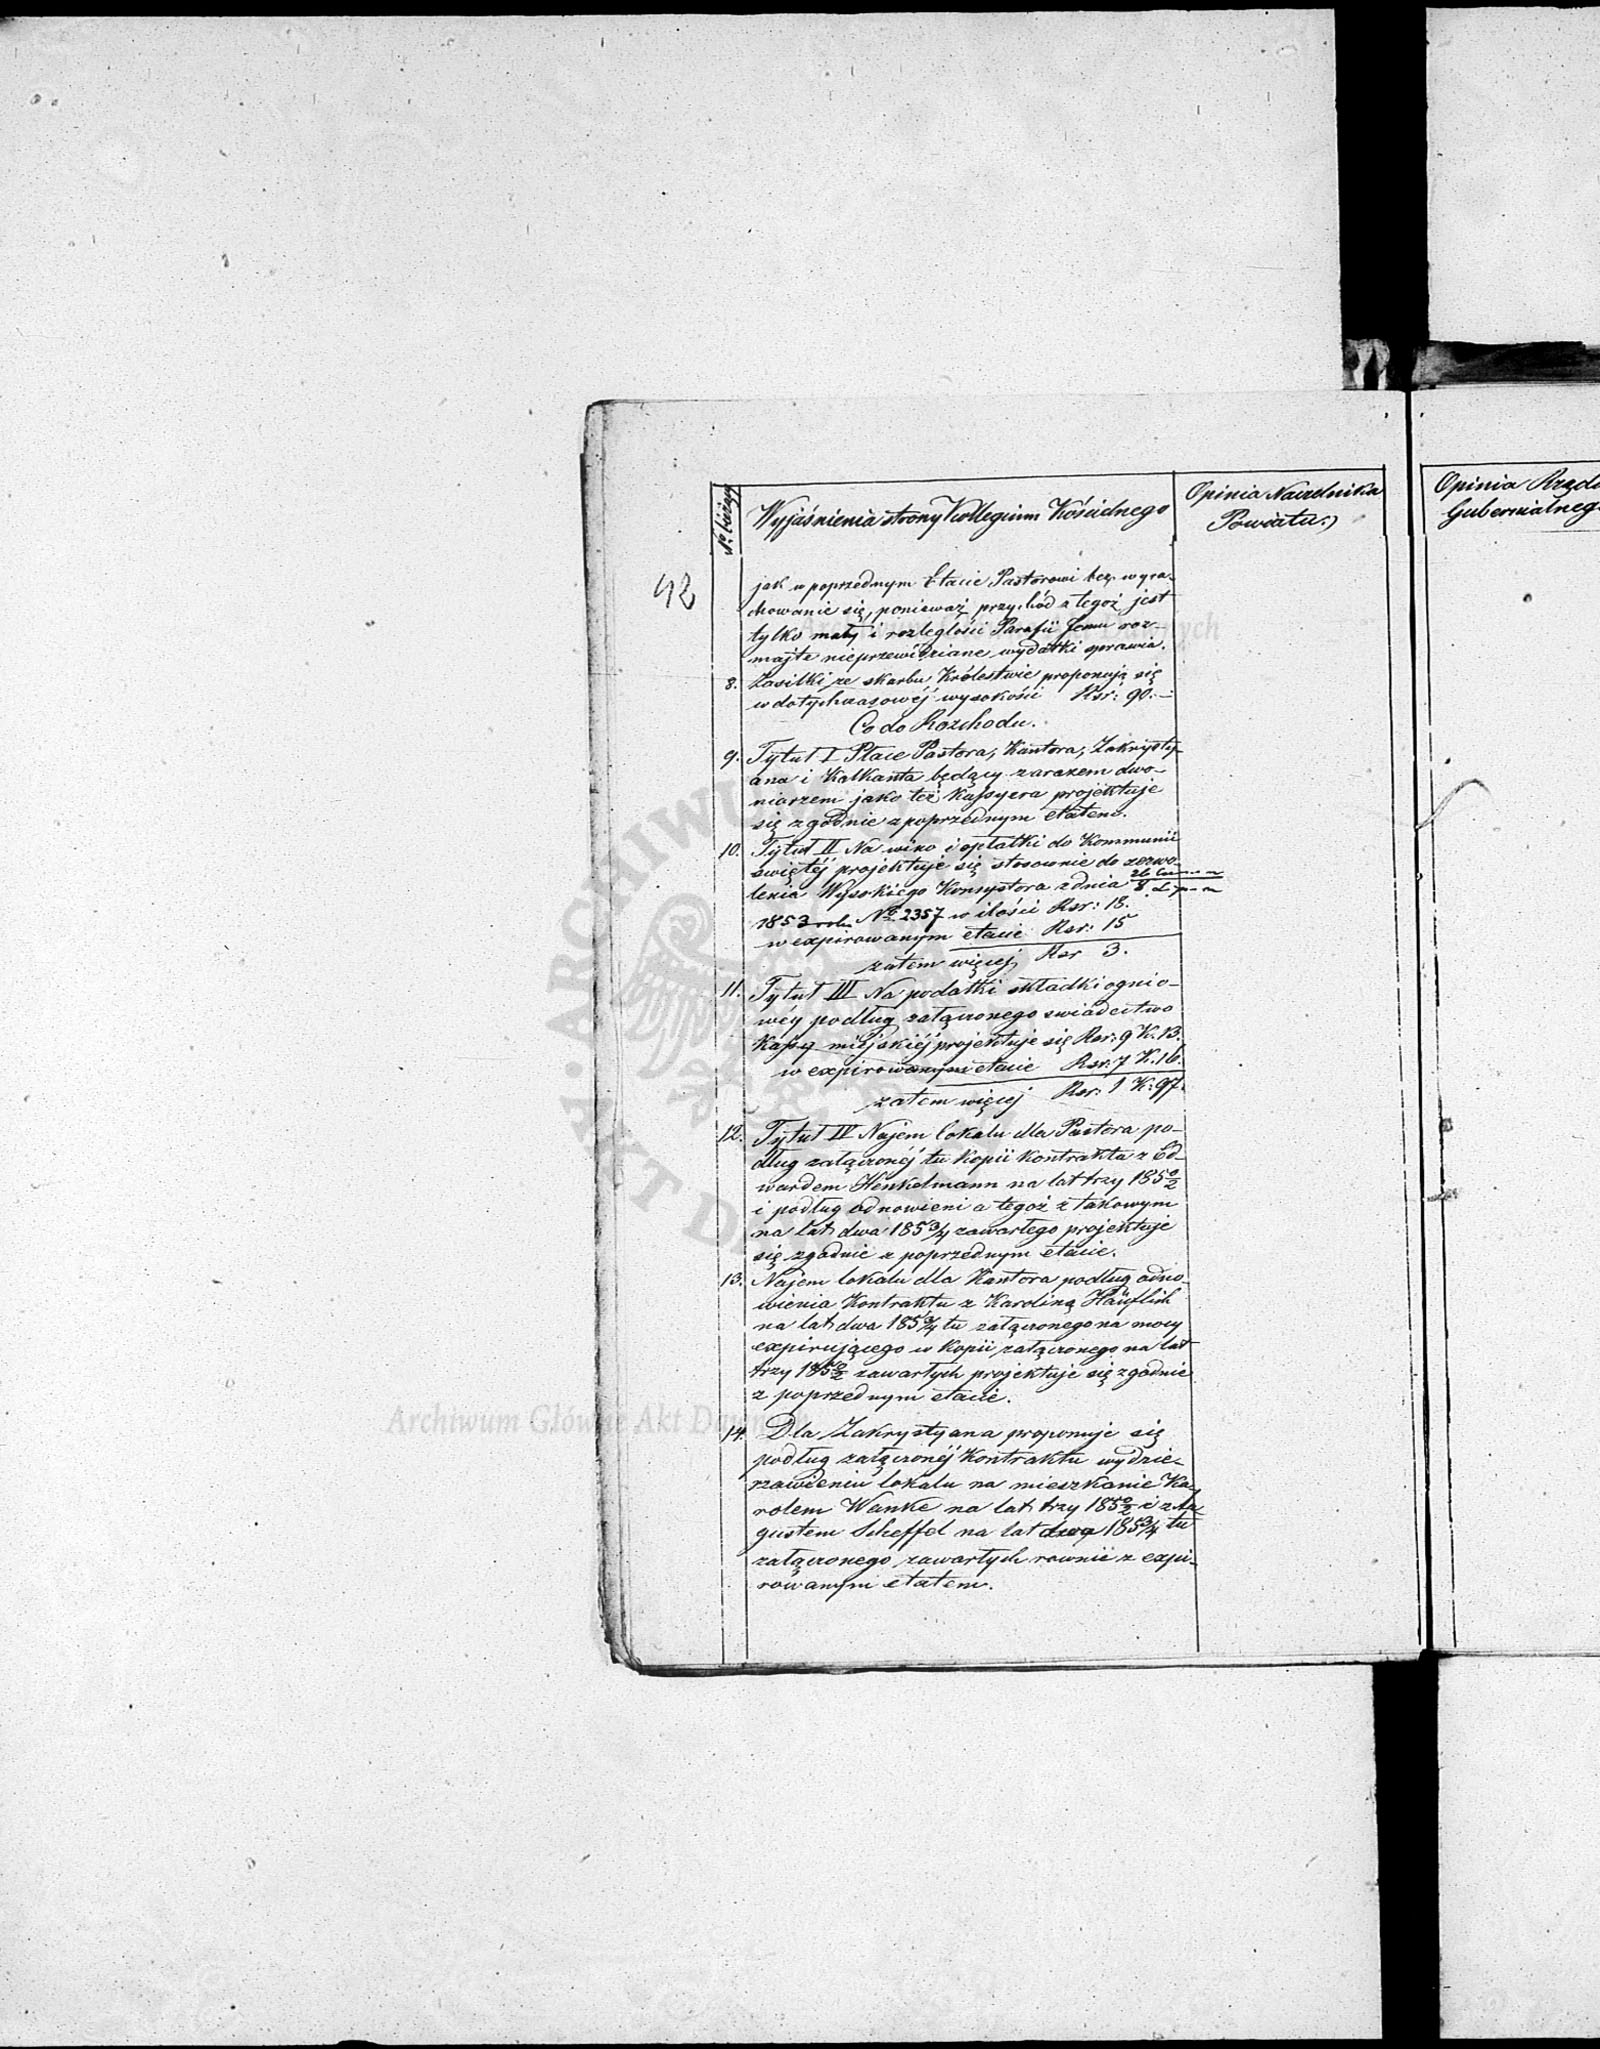 42
N: bieżący
Wyjaśnienia strony Kollegium Kościelnego
Opinia Naczelnika
Powiatu.
Opinia Rządu
Gubernialneg
jak w poprzednym Etacie Pastorowi bez wyra-
chowanie się, ponieważ przychód z tegoż jest
tylko mały i rozległości Parafii Jemu roz-
majte nieprzewidziane wydatki sprawia.
8. Zasiłki ze skarbu Królestwie proponują się
w dotychczasowéj wysokości Rsr: 90.—
Co do Rozchodu.
9. Tytuł I Płace Pastora, Kantora, Zakrysty-
ana i Kalkanta będący zarazem dwo-
niarzem jako też Kassyera projektuje
się zgodnie z poprzednym etatem.
10. Tytuł II Na wino i opłatki do Kommunii
świętéj projektuje się stosownie do zezwo-
lenia Wysokiego Konsystora z dnia 26 / 8
1853 roku No 2357 w ilości Rsr: 18.
w expirowanym etacie Rsr: 15
zatem więcej Rsr 3.
11. Tytuł III Na podatki składki ognio-
wéy podług załączonego swiadectwo
Kassy miejskiéj projektuje się Rsr: 9 K. 13.
w expirowanym etacie Rsr: 7 K. 16.
zatem więcej Rsr: 1 K: 97.
12. Tytuł IV Najem lokalu dla Pastora po-
dług załączonéj tu Kopii Kontrakta z Ed-
wardem Henkelmann na lat trzy 185 0/2
i podług odnowieni a tegoż z takowym
na lat dwa 185 3/4 zawartego projektuje
się zgodnie z poprzednym etacie.
13. Najem lokalu dla Kantora podług odno-
wienia Kontraktu z Karoliną Häuflich
na lat dwa 185 3/4 tu załączonego na mocy
expirującego w Kopii załączonego na lat
trzy 185 0/2 zawartych projektuje się zgodnie
z poprzednym etacie.
14. Dla Zakrystyana proponuje się
podług załączonéj Kontraktu wydzie-
rzawieniu lokalu na mieszkanie Ka-
rolem Wanke na lat trzy 185 0/2 i z Au
gustem Scheffel na lat dwa 185 3/4 tu
załączonego zawartych rownie z expi-
rowanym etatem.
ARCHIWUM
AKT D
Archiwum Główne Akt Dawnych